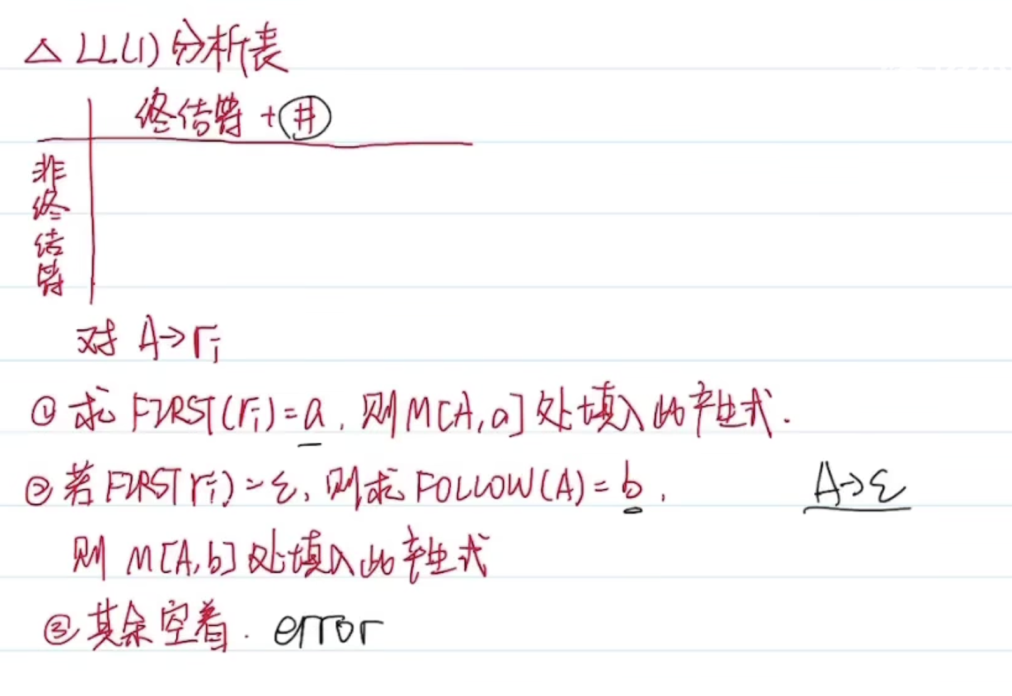 △ LL(1)分析表
终结符 + #
非终结符
对 A→rᵢ
① 求 FIRST(rᵢ)=a, 则M[A,a]处填入此产生式.
② 若FIRST(rᵢ)=ε, 则求FOLLOW(A)=b, A→ε
则 M[A,b]处填入此产生式
③ 其余空着. error